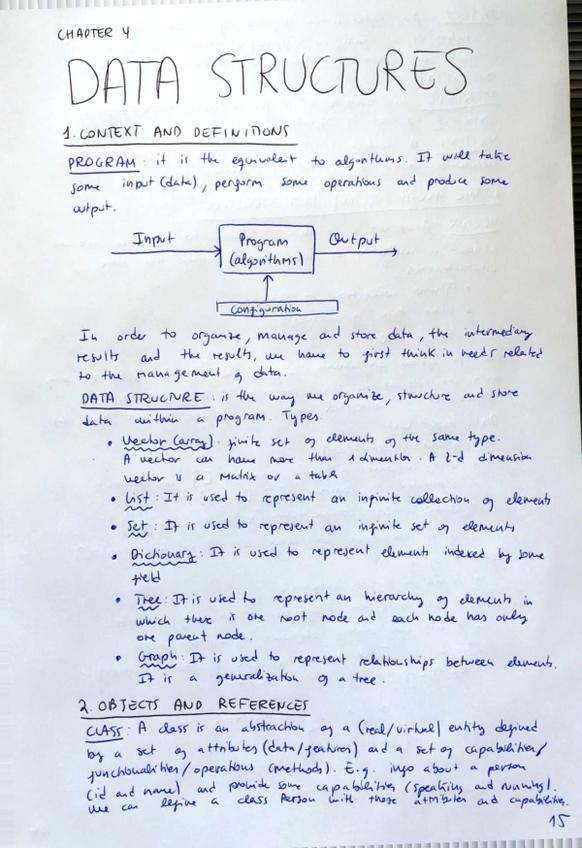 CHAPTER 4
DATA STRUCTURES
1. CONTEXT AND DEFINITIONS
PROGRAM: it is the equivalent to algorithms. It will take
some input (data), perform some operations and produce some
output.
Input
Program
(algorithms)
Output
Configuration
In order to organize, manage and store data, the intermediary
results and the results, we have to first think in needs related
to the management of data.
DATA STRUCTURE: is the way we organize, structure and store
data within a program. Types
• Vector (array): finite set of elements of the same type.
A vector can have more than 1 dimension. A 2-d dimension
vector is a matrix or a table
• List: It is used to represent an infinite collection of elements
• Set: It is used to represent an infinite set of elements
• Dictionary: It is used to represent elements indexed by some
field
• Tree: It is used to represent an hierarchy of elements in
which there is one root node and each node has only
one parent node.
• Graph: It is used to represent relationships between elements.
It is a generalization of a tree.
2. OBJECTS AND REFERENCES
CLASS: A class is an abstraction of a (real/virtual) entity defined
by a set of attributes (data/features) and a set of capabilities/
functionalities/operations (methods). E.g. info about a person
(id and name) and provide some capabilities (speaking and running).
We can define a class Person with those attributes and capabilities.
15